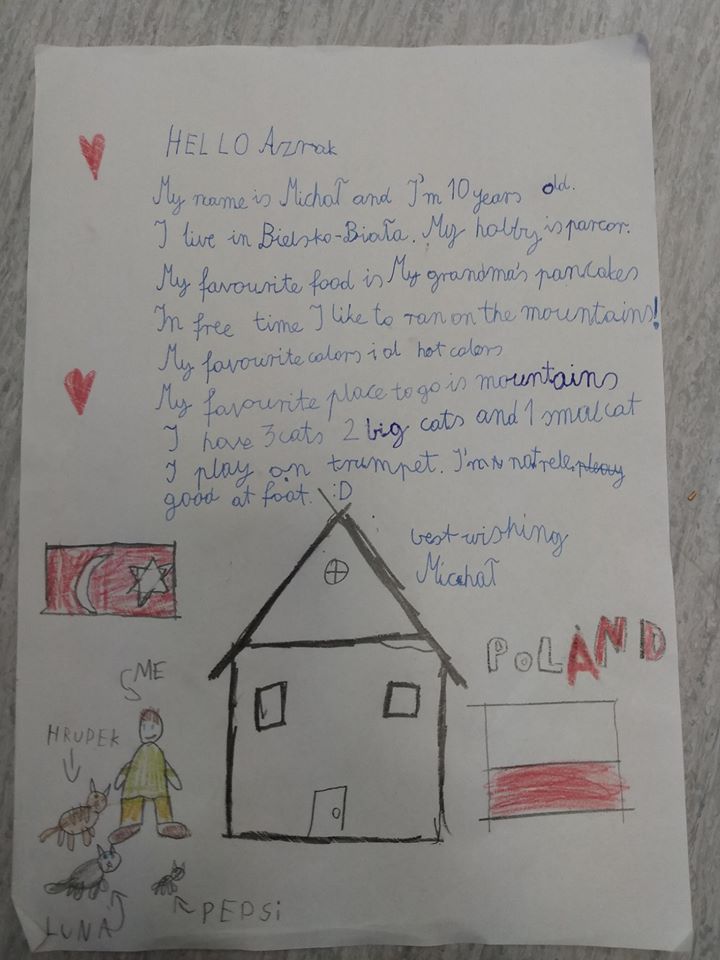 HELLO Azrak
My name is Michał and I'm 10 years old.
I live in Bielsko-Biała. My hobby is parcor.
My favourite food is My grandma's pancakes
In free time I like to ran on the mountains!
My favourite colors i ol hot colors
My favourite place to go is mountains
I have 3 cats 2 big cats and 1 smal cat
I play on trumpet. I'm not rele
good at foot. :D
best wishing
Michał
POLAND
ME
HRUPEK
LUNA
PEPSi